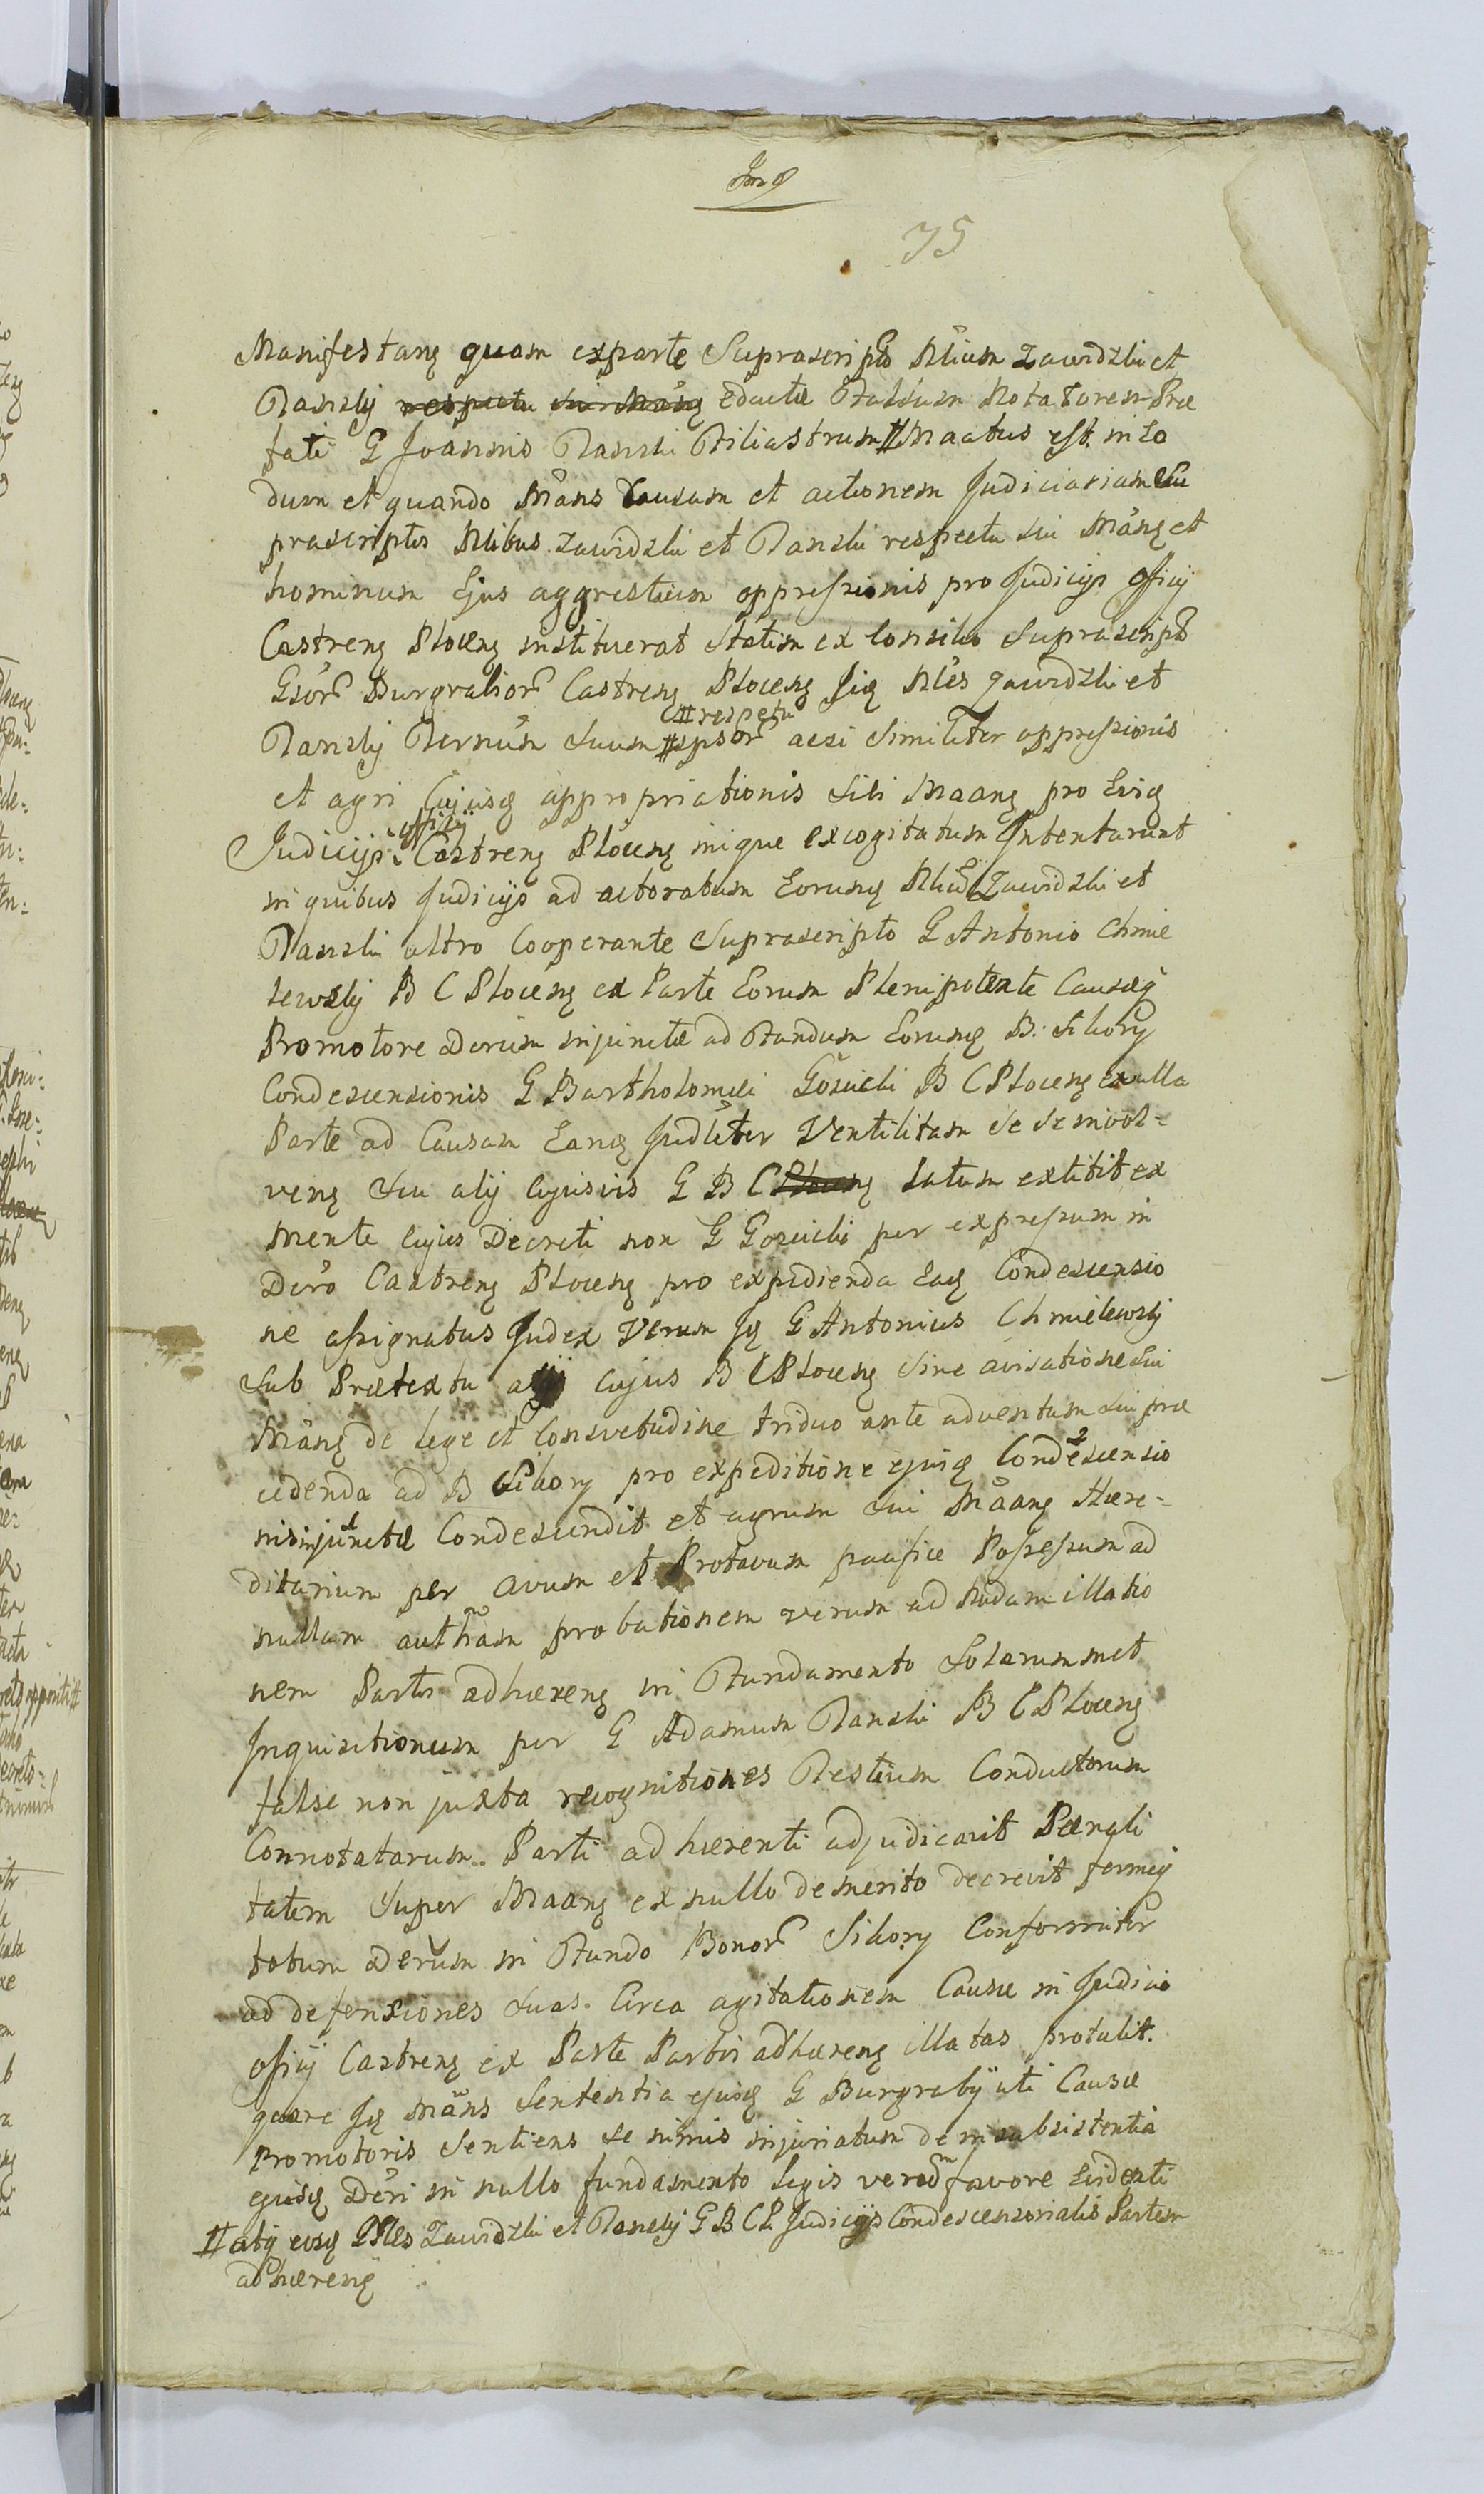 75
Manifestanꝫ quam exparte Suprascripto Nlium Zawidzki et
Ranzkÿ respectu sui Mãnꝫ Educta falsum Notatorem Præ
fati G Joannis Ranzki filiastrum # Maatus est. in Eo
dum et quando Mãns Causam et actionem Judiciariam Su
prascriptis Nlibus Zawidzki et Ranzki respectu sui Mãnꝫ et
hominum Ejus aggrestium oppressionis pro Judicijs Officij
Castrenꝫ Plocenꝫ instituerat statim ex Consilio Suprascripto
Gsor Burgrabior Castrenꝫ Plocenꝫ Jiꝗ Nles Zawidzki et
# respectu
Ranzkÿ Ternũm Suum # ipsor acsi Similiter oppressionis
et agri Cujusꝗ appropriationis sibi Maanꝫ pro Eisꝗ
officij
Judicijs Castrenꝫ Plocenꝫ inique excogitatum Intentarunt
in quibus Judicijs ad actoratum Eorumꝗ Nlium Zawidzki et
Ranzki ultro Cooperante Suprascripto G Antonio Chmie
lewskÿ B C Plocenꝫ ex Parte Eorum Plenipotente Causæꝗ
Promotore Decrum injunctæ ad fundum Eorumꝗ B: Sikory
Condescensionis G Bartholomæi Gosicki B C Plocenꝫ ex nulla
Parte ad Causam Eanꝗ Judliter Ventilitam se se invol-
venꝫ seu alij Cujusvis G B C Plocenꝫ Latum extitit ex
mente Cujus Decreti non G Gozicki per expressum in
Dcro Castrenꝫ Plocenꝫ pro expedienda Eaꝗ Condescensio
ne assignatus Judex Verum Jꝗ G Antonius Chmielewskÿ
Sub Prætextu alij cujus B C Plocenꝫ sine avisatione sui
Mãnꝫ de Lege et Consvetudine triduo ante adventum sui præ
cedenda ad B Sikory pro expeditione ejusꝗ Condescensio
nis injunctæ Condescendit et agrum sui Mãanꝫ Hære-
ditarium per Avum et Protavum pacifice Possessum ad
nullam authãm probationem verum ad nudam illatio
nem Partis adhærenꝫ in Fundamento Solarummet
Inquisitionum per G Adamum Ranzki B C Plocenꝫ
false non juxta recognitiones Testium Conductorum
Connotatarum. Parti adhærenti adjudicavit Pænali
tatem Super Maanꝫ ex nullo demerito decrevit
totum Decrũm in Fundo Bonor Sikory Conformiter
ad defensiones suas. Circa agitationem Causæ in Judicio
officij Castrenꝫ ex Parte Partis adhærenꝫ illatas protulit.
quare Jꝗ Mãns Sententia ejusꝗ G Burgrabij uti Causæ
Promotoris Sentiens se nimis injuriatum de insubsistentia
ejusꝗ Dcri in nullo fundamento Legis verum favore Evidenti
# alij eosꝗ Nles Zawidzki et Ranzkÿ G B C P Judicijs Condescensorialis Partem
adhærenꝫ